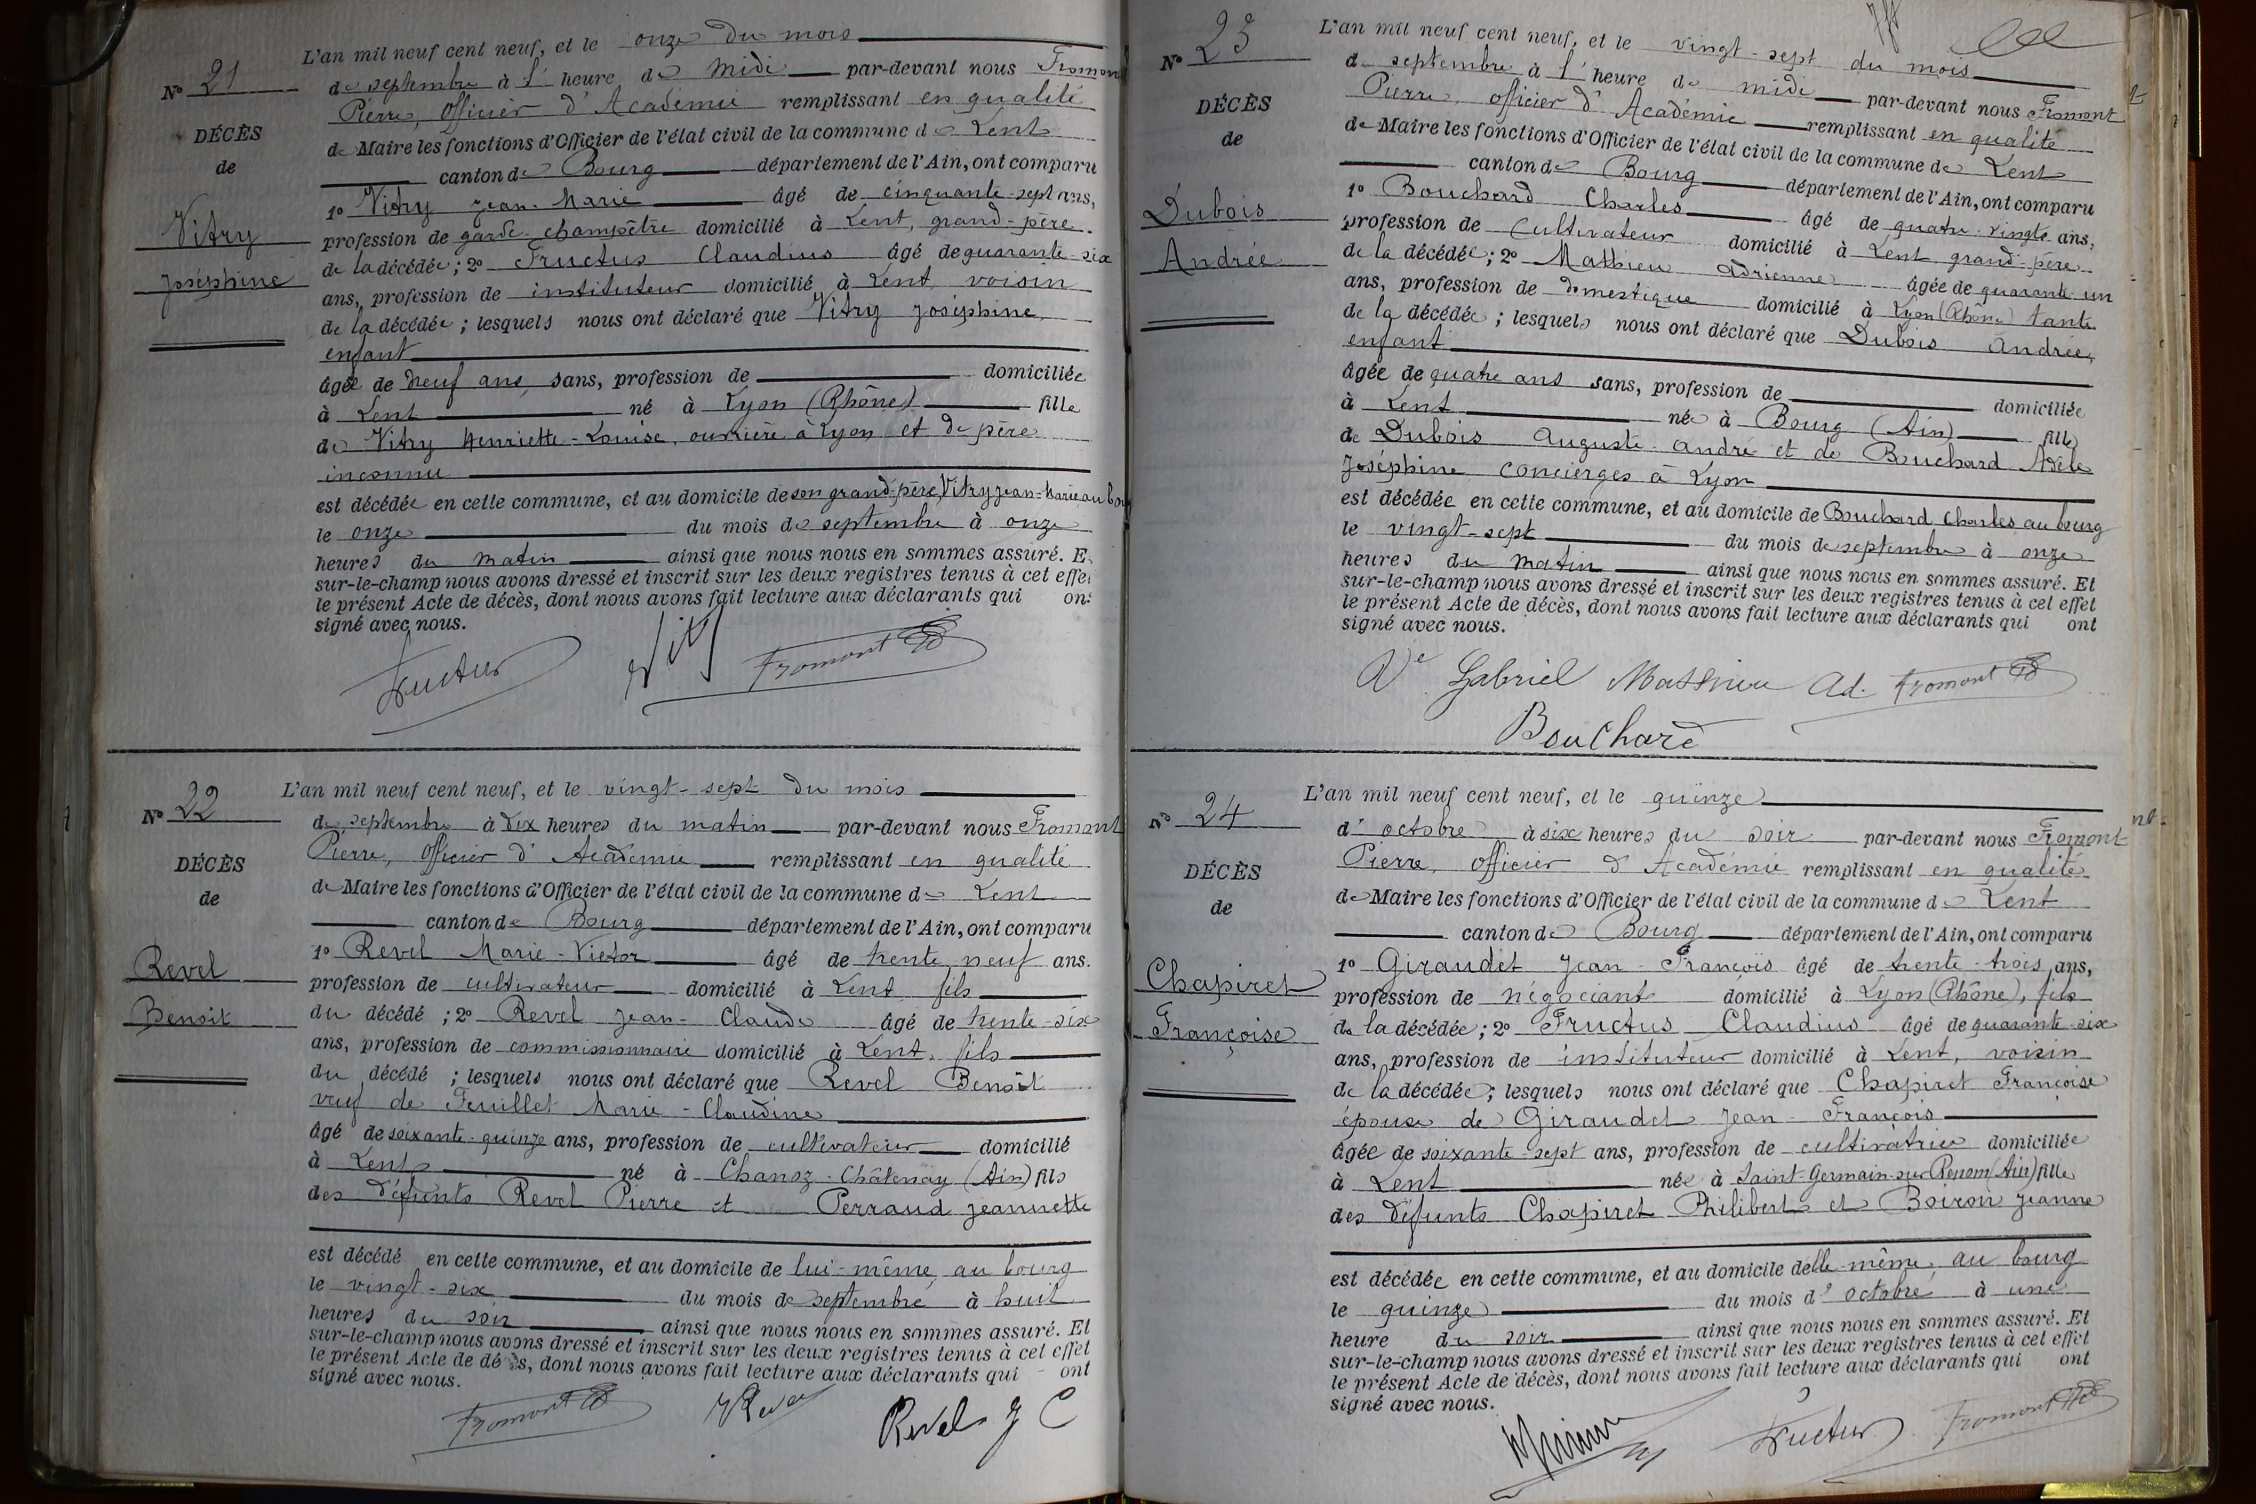 L'an mil neuf cent neuf, et le onze du mois
N° 21
de septembre à l' heure de midi par-devant nous Fromont
Pierre, Officier d'Académie remplissant en qualité
DÉCÈS
de Maire les fonctions d'Officier de l'état civil de la commune de Lent
de
canton de Bourg département de l'Ain, ont comparu
1° Vitry Jean-Marie âgé de cinquante-sept ans,
Vitry
profession de garde-champêtre domicilié à Lent, grand-père
de la décédée ; 2° Fructus Claudius âgé de quarante-six
Joséphine
ans, profession de instituteur domicilié à Lent, voisin
de la décédée ; lesquels nous ont déclaré que Vitry Joséphine,
enfant
âgée de neuf ans, sans, profession de domiciliée
à Lent né à Lyon (Rhône) fille
de Vitry Henriette-Louise, ouvrière à Lyon et de père
inconnu
est décédée en cette commune, et au domicile de son grand-père, Vitry Jean-Marie au bourg
le onze du mois de septembre à onze
heures du matin ainsi que nous nous en sommes assuré. Et
sur-le-champ nous avons dressé et inscrit sur les deux registres tenus à cet effet
le présent Acte de décès, dont nous avons fait lecture aux déclarants qui ont
signé avec nous.
Fructus Vitry Fromont
L'an mil neuf cent neuf, et le vingt-sept du mois
N° 22
de septembre à dix heures du matin par-devant nous Fromont
Pierre, Officier d'Académie remplissant en qualité
DÉCÈS
de Maire les fonctions d'Officier de l'état civil de la commune de Lent
de
canton de Bourg département de l'Ain, ont comparu
1° Revel Marie-Victor âgé de trente neuf ans.
Revel
profession de cultivateur domicilié à Lent fils
du décédé ; 2° Revel Jean-Claude âgé de trente-six
Benoit
ans, profession de commissionnaire domicilié à Lent, fils
du décédé ; lesquels nous ont déclaré que Revel Benoît
veuf de Feuillet Marie-Claudine
âgé de soixante-quinze ans, profession de cultivateur domicilié
à Lent né à Chanoz-Châtenay (Ain) fils
des défunts Revel Pierre et Perraud Jeannette
est décédé en cette commune, et au domicile de lui-même, au bourg
le vingt-six du mois de septembre à huit
heures du soir ainsi que nous nous en sommes assuré. Et
sur-le-champ nous avons dressé et inscrit sur les deux registres tenus à cet effet
le présent Acte de décès, dont nous avons fait lecture aux déclarants qui ont
signé avec nous.
Fromont Revel Revel J C
L'an mil neuf cent neuf, et le vingt-sept du mois
N° 23
de septembre à l' heure de midi par-devant nous Fromont
Pierre, officier d'Académie remplissant en qualité
DÉCÈS
de Maire les fonctions d'Officier de l'état civil de la commune de Lent
de
canton de Bourg département de l'Ain, ont comparu
1° Bouchard Charles âgé de quatre-vingts ans,
Dubois
profession de cultivateur domicilié à Lent grand-père
de la décédée ; 2° Mathieu Adrienne âgée de quarante un
Andrée
ans, profession de domestique domicilié à Lyon (Rhône) tante
de la décédée ; lesquels nous ont déclaré que Dubois Andrée,
enfant
âgée de quatre ans sans, profession de domiciliée
à Lent née à Bourg (Ain) fille
de Dubois Auguste André et de Bouchard Adèle
Joséphine concierges à Lyon
est décédée en cette commune, et au domicile de Bouchard Charles au bourg
le vingt-sept du mois de septembre à onze
heures du matin ainsi que nous nous en sommes assuré. Et
sur-le-champ nous avons dressé et inscrit sur les deux registres tenus à cet effet
le présent Acte de décès, dont nous avons fait lecture aux déclarants qui ont
signé avec nous.
Ve Gabriel Mathieu Ad. Fromont
Bouchard
L'an mil neuf cent neuf, et le quinze
N° 24
d'octobre à six heures du soir par-devant nous Fromont
Pierre, officier d'Académie remplissant en qualité
DÉCÈS
de Maire les fonctions d'Officier de l'état civil de la commune de Lent
de
canton de Bourg département de l'Ain, ont comparu
1° Giraudet Jean-François âgé de trente-trois ans,
Chapiret
profession de négociant domicilié à Lyon (Rhône), fils
de la décédée ; 2° Fructus Claudius âgé de quarante-six
Françoise
ans, profession de instituteur domicilié à Lent, voisin
de la décédée ; lesquels nous ont déclaré que Chapiret Françoise
épouse de Giraudet Jean-François
âgée de soixante-sept ans, profession de cultivatrice domiciliée
à Lent née à Saint-Germain-sur-Renom (Ain) fille
des défunts Chapiret Philibert et Boiron Jeanne
est décédée en cette commune, et au domicile d'elle-même, au bourg
le quinze du mois d'octobre à une
heure du soir ainsi que nous nous en sommes assuré. Et
sur-le-champ nous avons dressé et inscrit sur les deux registres tenus à cet effet
le présent Acte de décès, dont nous avons fait lecture aux déclarants qui ont
signé avec nous.
Fructus Fromont